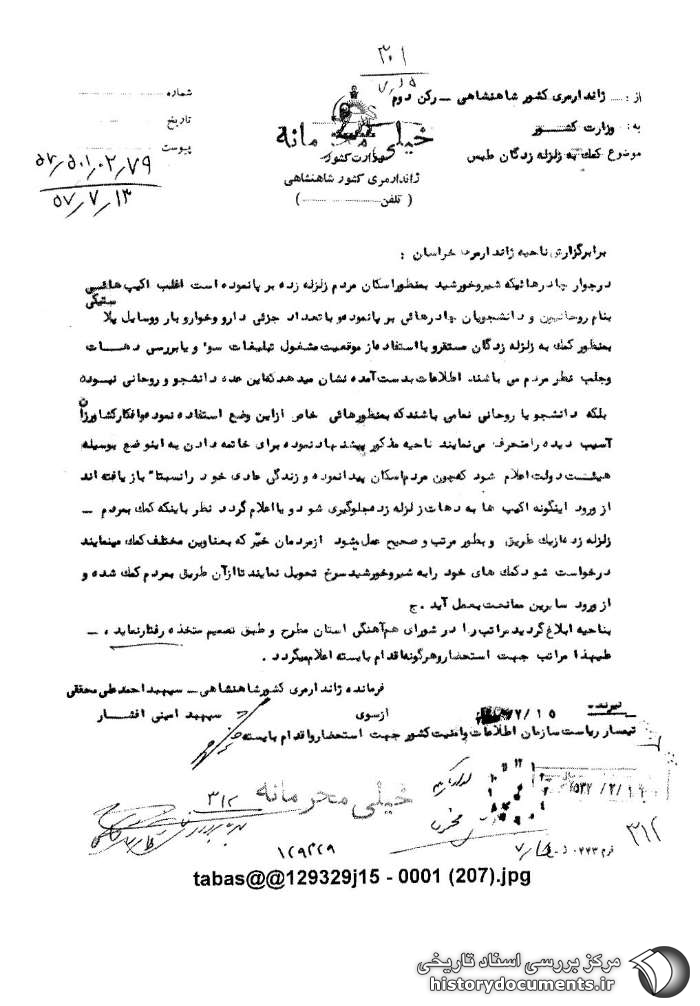 ۳۰۱
از: ژاندارمری کشور شاهنشاهی – رکن دوم
به: وزارت کشور
موضوع کمک به زلزله زدگان طبس
خیلی محرمانه
وزارت کشور
ژاندارمری کشور شاهنشاهی
( تلفن )
شماره
تاریخ
پیوست
۵۷/۵۰۱/۰۲/۷۹
۵۷/۷/۱۳
برابر گزارش ناحیه ژاندارمری خراسان :
در جوار چادرهائیکه شیروخورشید بمنظور اسکان مردم زلزله زده بر پا نموده است اغلب اکیپ هائی
بنام روحانیین و دانشجویان چادرهائی بر پا نموده و با تعداد جزئی دارو و خواروبار و وسایل پلاستیکی
بمنظور کمک به زلزله زدگان مستقر و با استفاده از موقعیت مشغول تبلیغات سوء و یا بررسی دهات
وجلب نظر مردم می باشند. اطلاعات بدست آمده نشان میدهد که این عده دانشجو و روحانی نبوده
بلکه دانشجو یا روحانی نمامی باشند که بمنظورهائی خاص از این وضع استفاده نموده و افکار کشاورزان
آسیب دیده را منحرف می نمایند ناحیه مذکور پیشنهاد نموده برای خاتمه دادن به این وضع بوسیله
هیئت دولت اعلام شود که چون مردم اسکان پیدا نموده و زندگی عادی خود را نسبتا" باز یافته اند
از ورود اینگونه اکیپ ها به دهات زلزله زده جلوگیری شود و یا اعلام گردد نظر باینکه کمک بمردم –
زلزله زده از یک طریق و بطور مرتب و صحیح عمل بشود از مردمان خیّر که بعناوین مختلف کمک مینمایند
درخواست شود کمک های خود را به شیروخورشید سرخ تحویل نمایند تا از آن طریق بمردم کمک شده و
از ورود سایرین ممانعت بعمل آید . ج
بناحیه ابلاغ گردید مراتب را در شورای هم آهنگی استان مطرح و طبق تصمیم متخذه رفتار نماید ، –
علیهذا مراتب جهت استحضار و هرگونه اقدام بایسته اعلام میگردد .
فرمانده ژاندارمری کشور شاهنشاهی – سپهبد احمد علی محققی
از سوی سپهبد امینی افشار
گیرنده
۲/۱۵
تیمسار ریاست سازمان اطلاعات و امنیت کشور جهت استحضار و اقدام بایسته
خیلی محرمانه
۳۱۲
۳۱۲
۱۲۹۳۲۹
فرم ۰۴۴۳
tabas@@129329j15 - 0001 (207).jpg
مرکز بررسی اسناد تاریخی
historydocuments.ir